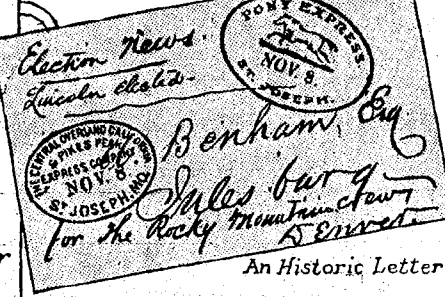 Election News.
Lincoln Elected.
PONY EXPRESS
NOV. 8.
ST. JOSEPH.
THE CENTRAL OVERLAND CALIFORNIA
& PIKES PEAK
EXPRESS COMPANY
NOV. 8.
ST JOSEPH, MO.
Benham, Esq
Julesburg
for the Rocky Mountain News
Denver.
An Historic Letter